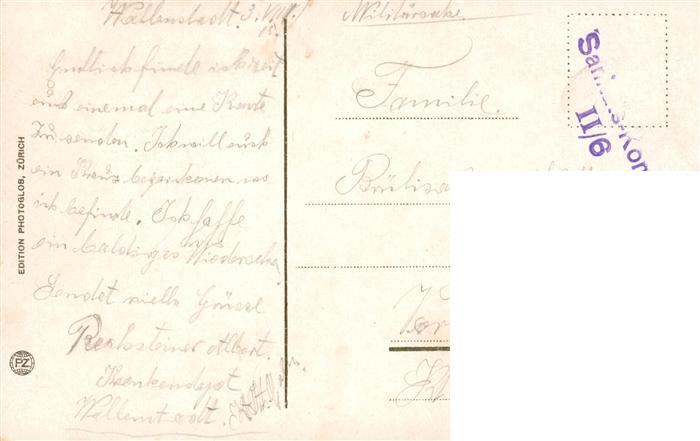 Wallenstadt. 3. VIII.
15.
Endlich finde ich Zeit
euch einemal eine Karte
Zu senden. Ich will euch
ein Kreuz bezeichnen wo
ich befinde. Ich hoffe
ein baldiges Wiedersehen
Sendet vielle Grüsse
Rechsteiner Albert.
Krankendepot
Wallenstadt.
Militärsache
Familie.
II/6
EDITION PHOTOGLOB, ZÜRICH
PZ